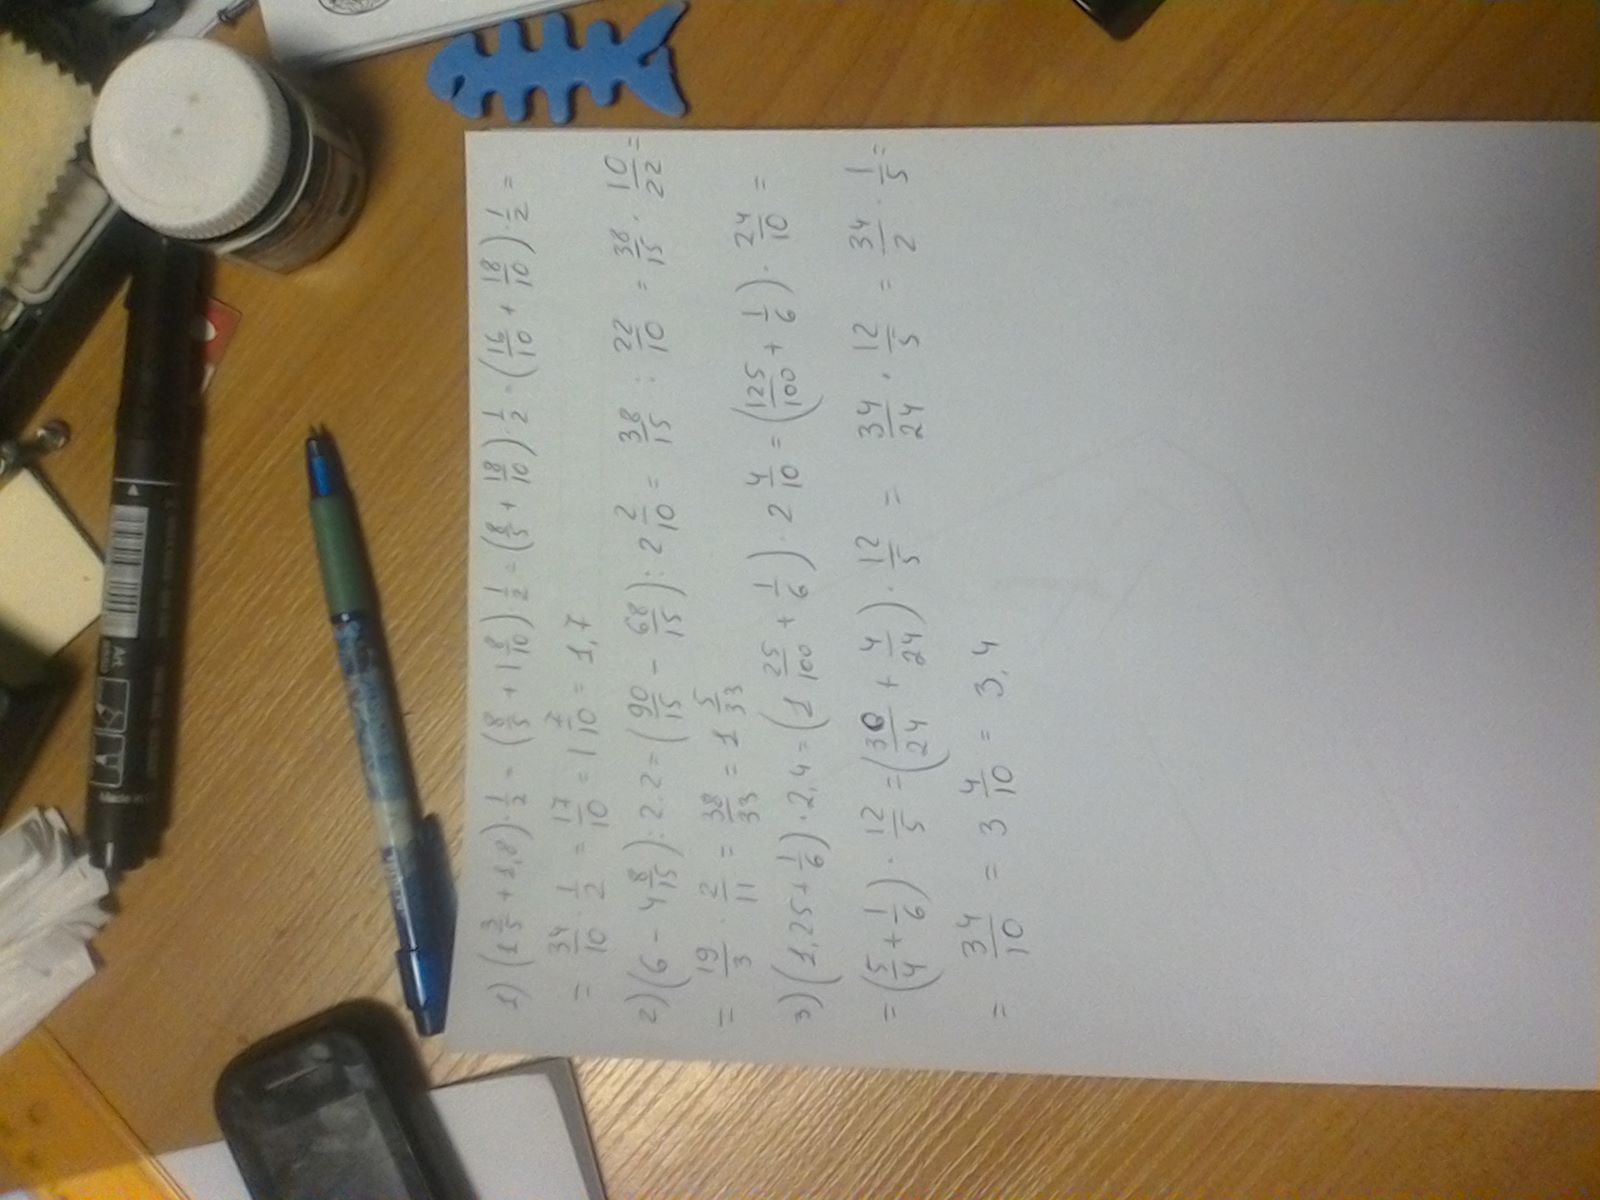 1) (1 3/5 + 1,8) · 1/2 = (8/5 + 1 8/10) · 1/2 = (8/5 + 18/10) · 1/2 = (16/10 + 18/10) · 1/2 =
= 34/10 · 1/2 = 17/10 = 1 7/10 = 1,7
2) (6 - 4 8/15) : 2.2 = (90/15 - 68/15) : 2 2/10 = 38/15 : 22/10 = 38/15 · 10/22 =
= 19/3 · 2/11 = 38/33 = 1 5/33
3) (1,25 + 1/6) · 2,4 = (1 25/100 + 1/6) · 2 4/10 = (125/100 + 1/6) · 24/10 =
= (5/4 + 1/6) · 12/5 = (30/24 + 4/24) · 12/5 = 34/24 · 12/5 = 34/2 · 1/5 =
= 34/10 = 3 4/10 = 3,4
Art.